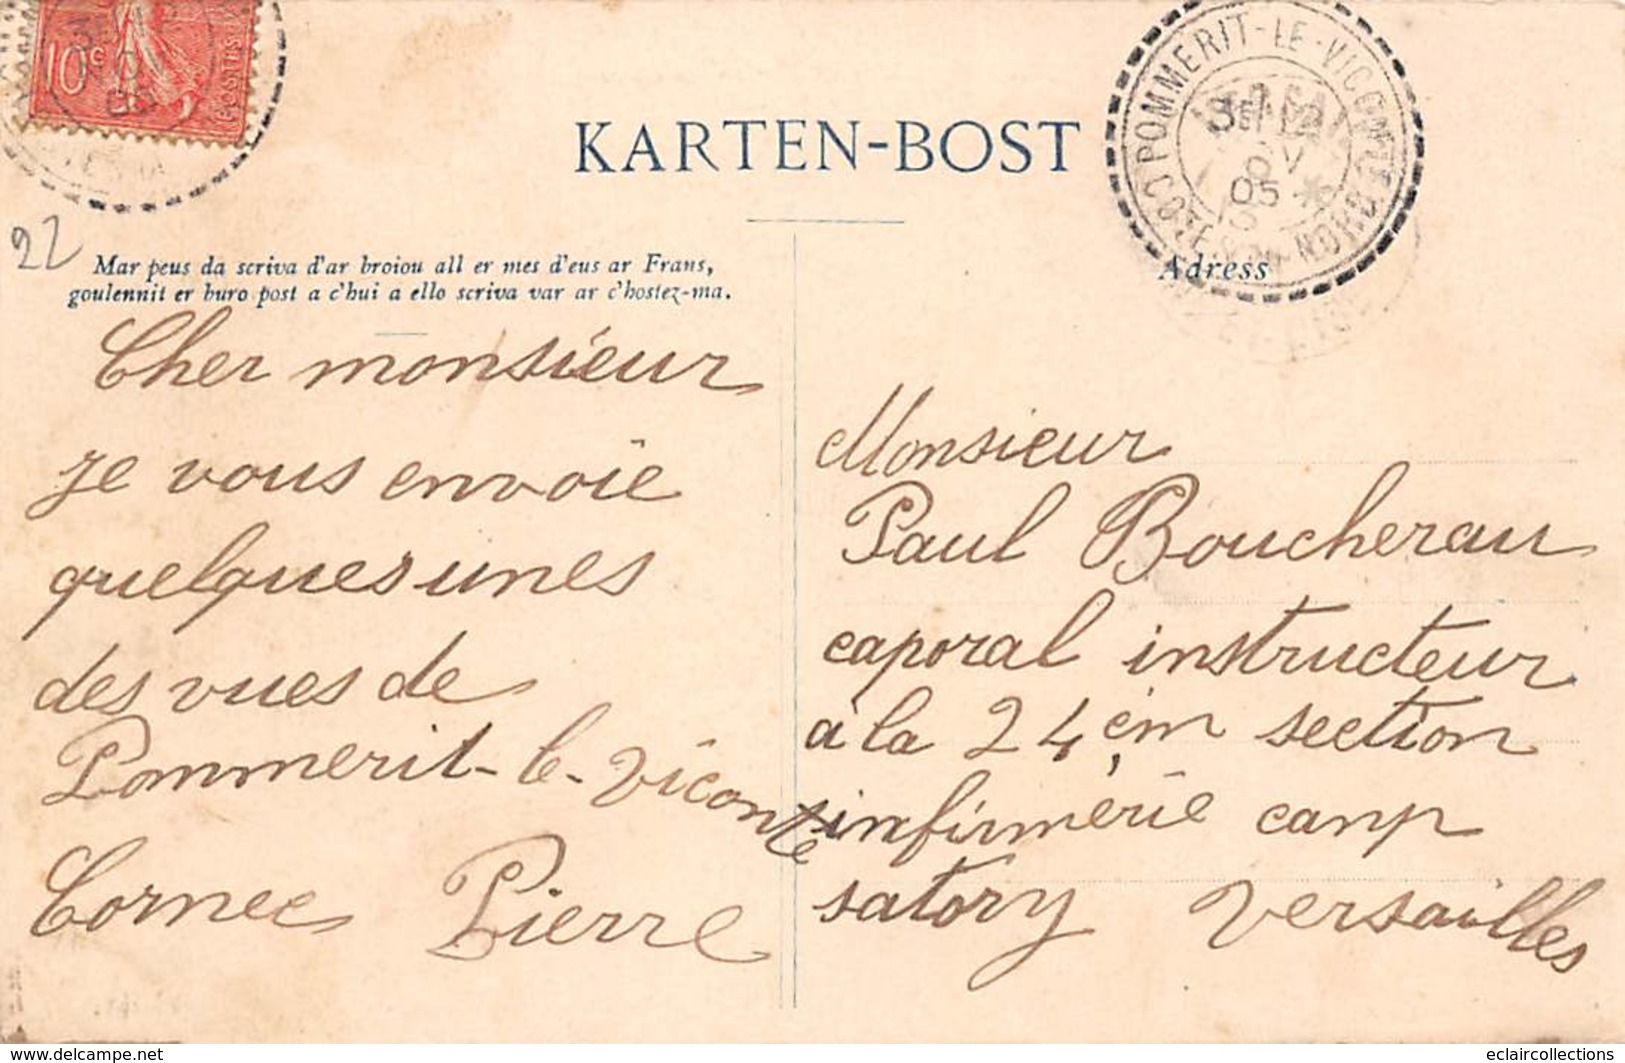 10c
POSTES
22
KARTEN-BOST
POMMERIT-LE-VICOMTE
COTES DU NORD
05
Mar peus da scriva d'ar broiou all er mes d'eus ar Frans,
goulennit er buro post a c'hui a ello scriva var ar c'hostez-ma.
Adress
Cher monsieur
je vous envoie
quelquesunes
des vues de
Pommerit-le-Vicomte
Cornec Pierre
Monsieur
Paul Boucherau
caporal instructeur
à la 24 èm section
infirmerie camp
satory Versailles
www.delcampe.net
eclaircollections